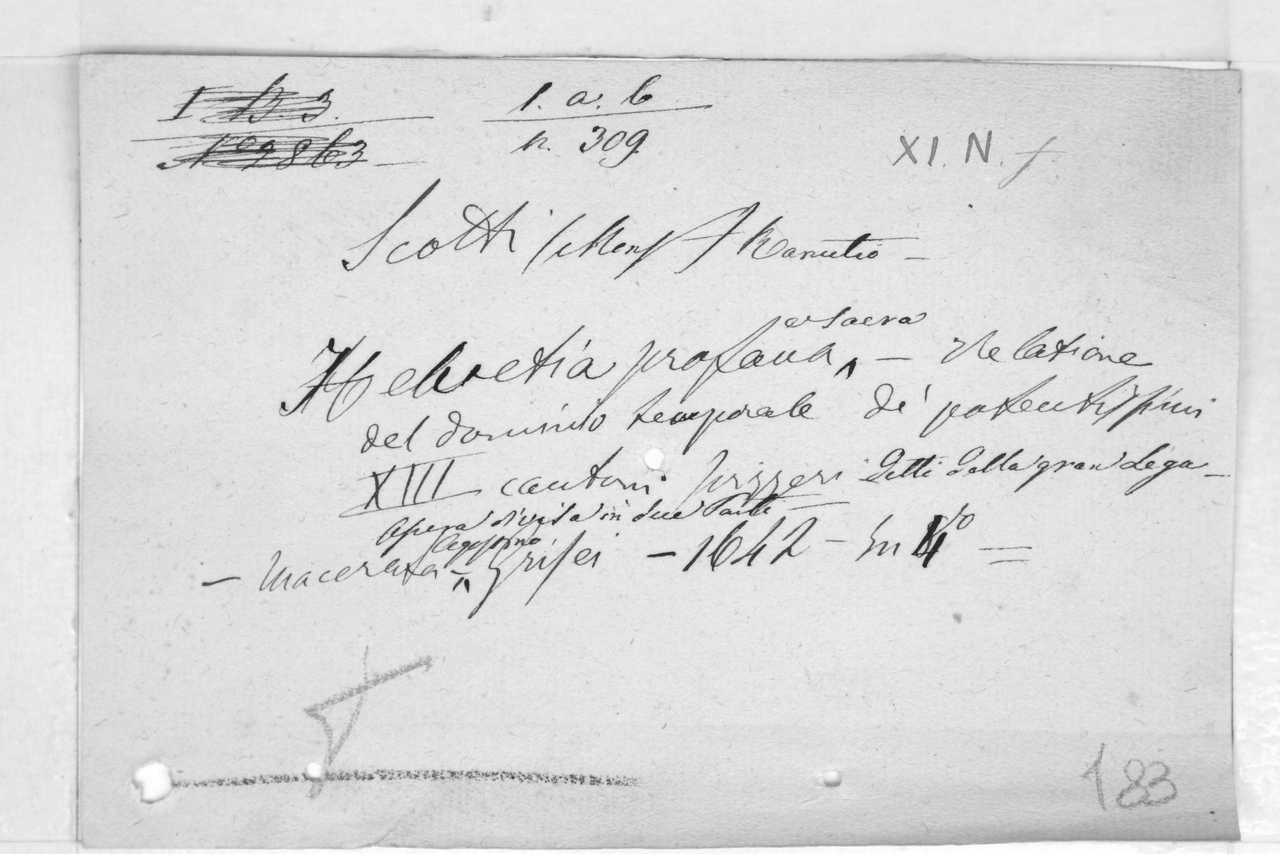 I B. 3.
1. a. 6
No 9863
n. 309
XI. N. f
Scotti (Mons.r) Ranutio —
Helvetia profana e sacra — Relatione
del dominio temporale de' potentissimi
XIII cantoni Svizzeri Detti della gran Lega —
Opera divisa in due Parti —
— Macerata — Agostino Grisei — 1642 — In 4to =
183